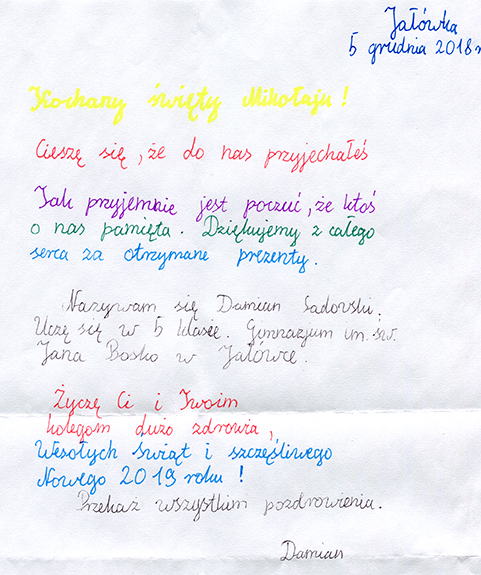 Jałówka
5 grudnia 2018r
Kochany święty Mikołaju!
Cieszę się, że do nas przyjechałeś
Jak przyjemnie jest poczuć, że ktoś
o nas pamięta. Dziękujemy z całego
serca za otrzymane prezenty.
Nazywam się Damian Sadovski.
Uczę się w 5 klasie. Gimnazjum im. św.
Jana Bosko w Jałówce.
Życzę Ci i Twoim
kolegom dużo zdrowia,
Wesołych świąt i szczęśliwego
Nowego 2019 roku!
Przekaż wszystkim pozdrowienia.
Damian